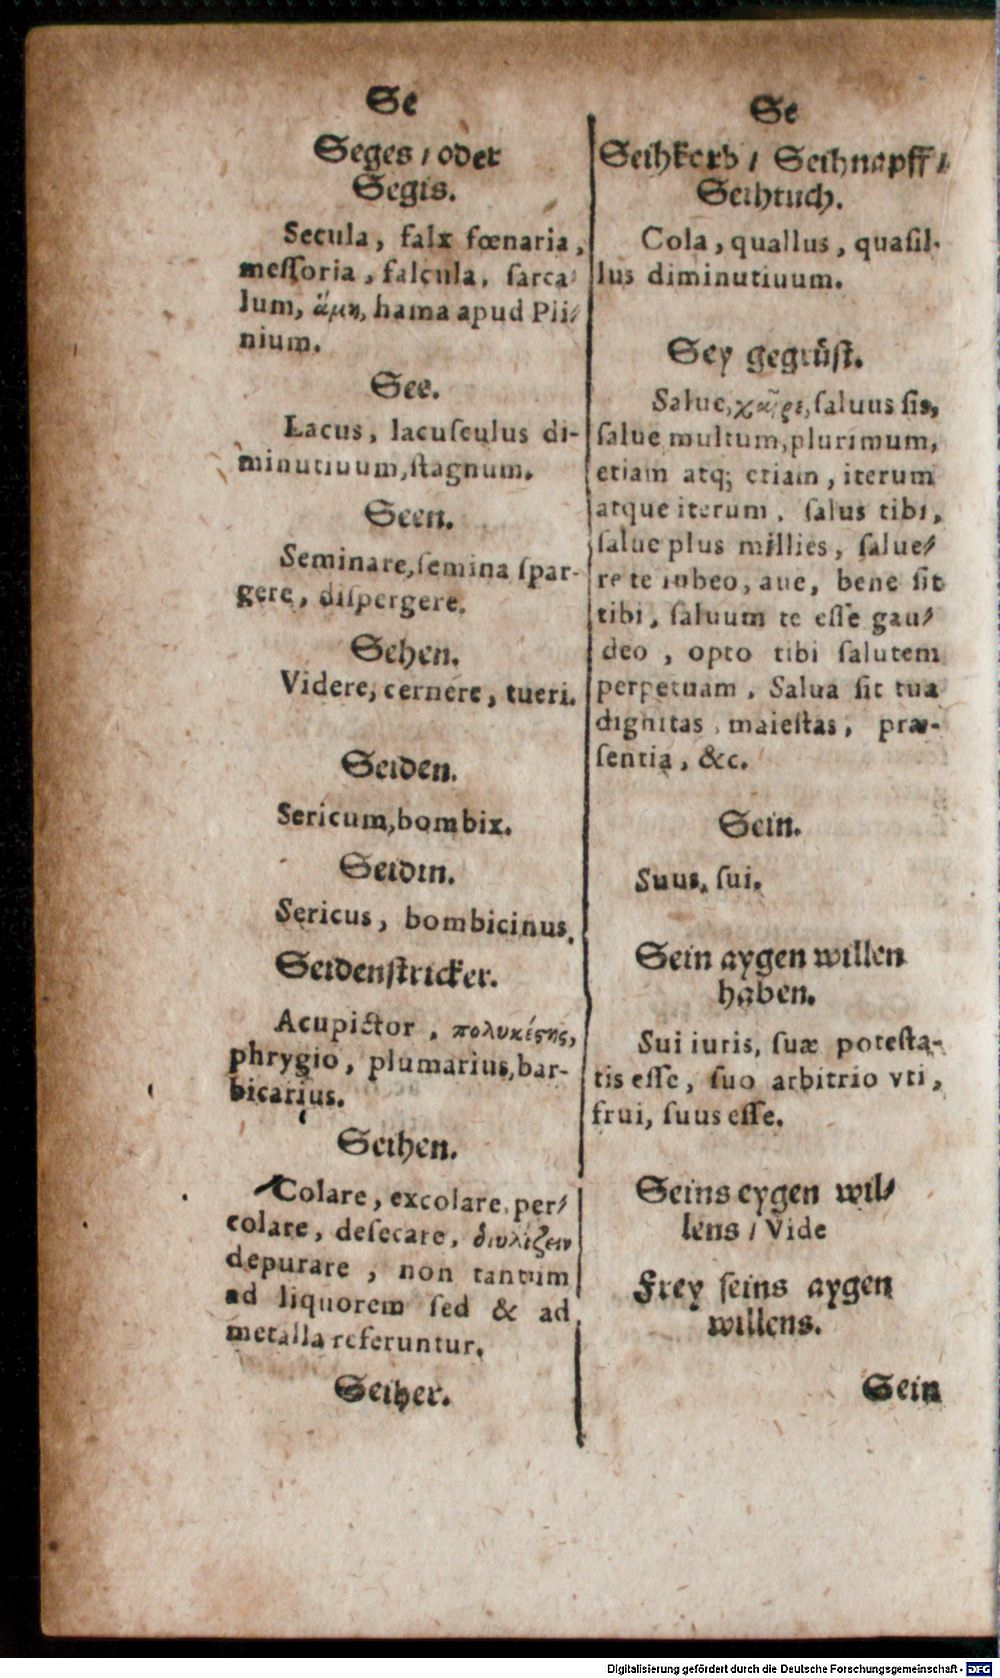 Se
Seges / oder
Segis.
Secula, falx fœnaria,
meſſoria, falcula, ſarca⸗
lum, ἅμη, hama apud Pli⸗
nium.
See.
Lacus, lacuſculus di-
minutiuum, ſtagnum.
Seen.
Seminare, ſemina ſpar-
gere, diſpergere.
Sehen.
Videre, cernere, tueri.
Seiden.
Sericum, bombix.
Seidin.
Sericus, bombicinus.
Seidenſtricker.
Acupictor, πολυκέςης,
phrygio, plumarius, bar-
bicarius.
Seihen.
Colare, excolare, per⸗
colare, deſecare, διυλίζειν
depurare, non tantum
ad liquorem ſed & ad
metalla referuntur.
Seiher.
Se
Seihkorb / Seihnapff /
Seihtuch.
Cola, quallus, quaſil-
lus diminutiuum.
Sey gegrüſt.
Salue, χαῖρε, ſaluus ſis,
ſalue multum, plurimum,
etiam atq; etiam, iterum
atque iterum, ſalus tibi,
ſalue plus millies, ſalue⸗
re te iubeo, aue, bene ſit
tibi, ſaluum te eſſe gau⸗
deo, opto tibi ſalutem
perpetuam, Salua ſit tua
dignitas, maieſtas, præ-
ſentia, &c.
Sein.
Suus, ſui.
Sein aygen willen
haben.
Sui iuris, ſuæ poteſta-
tis eſſe, ſuo arbitrio vti,
frui, ſuus eſſe.
Seins eygen wil⸗
lens / Vide
Frey ſeins aygen
willens.
Sein
Digitalisierung gefördert durch die Deutsche Forschungsgemeinschaft - DFG